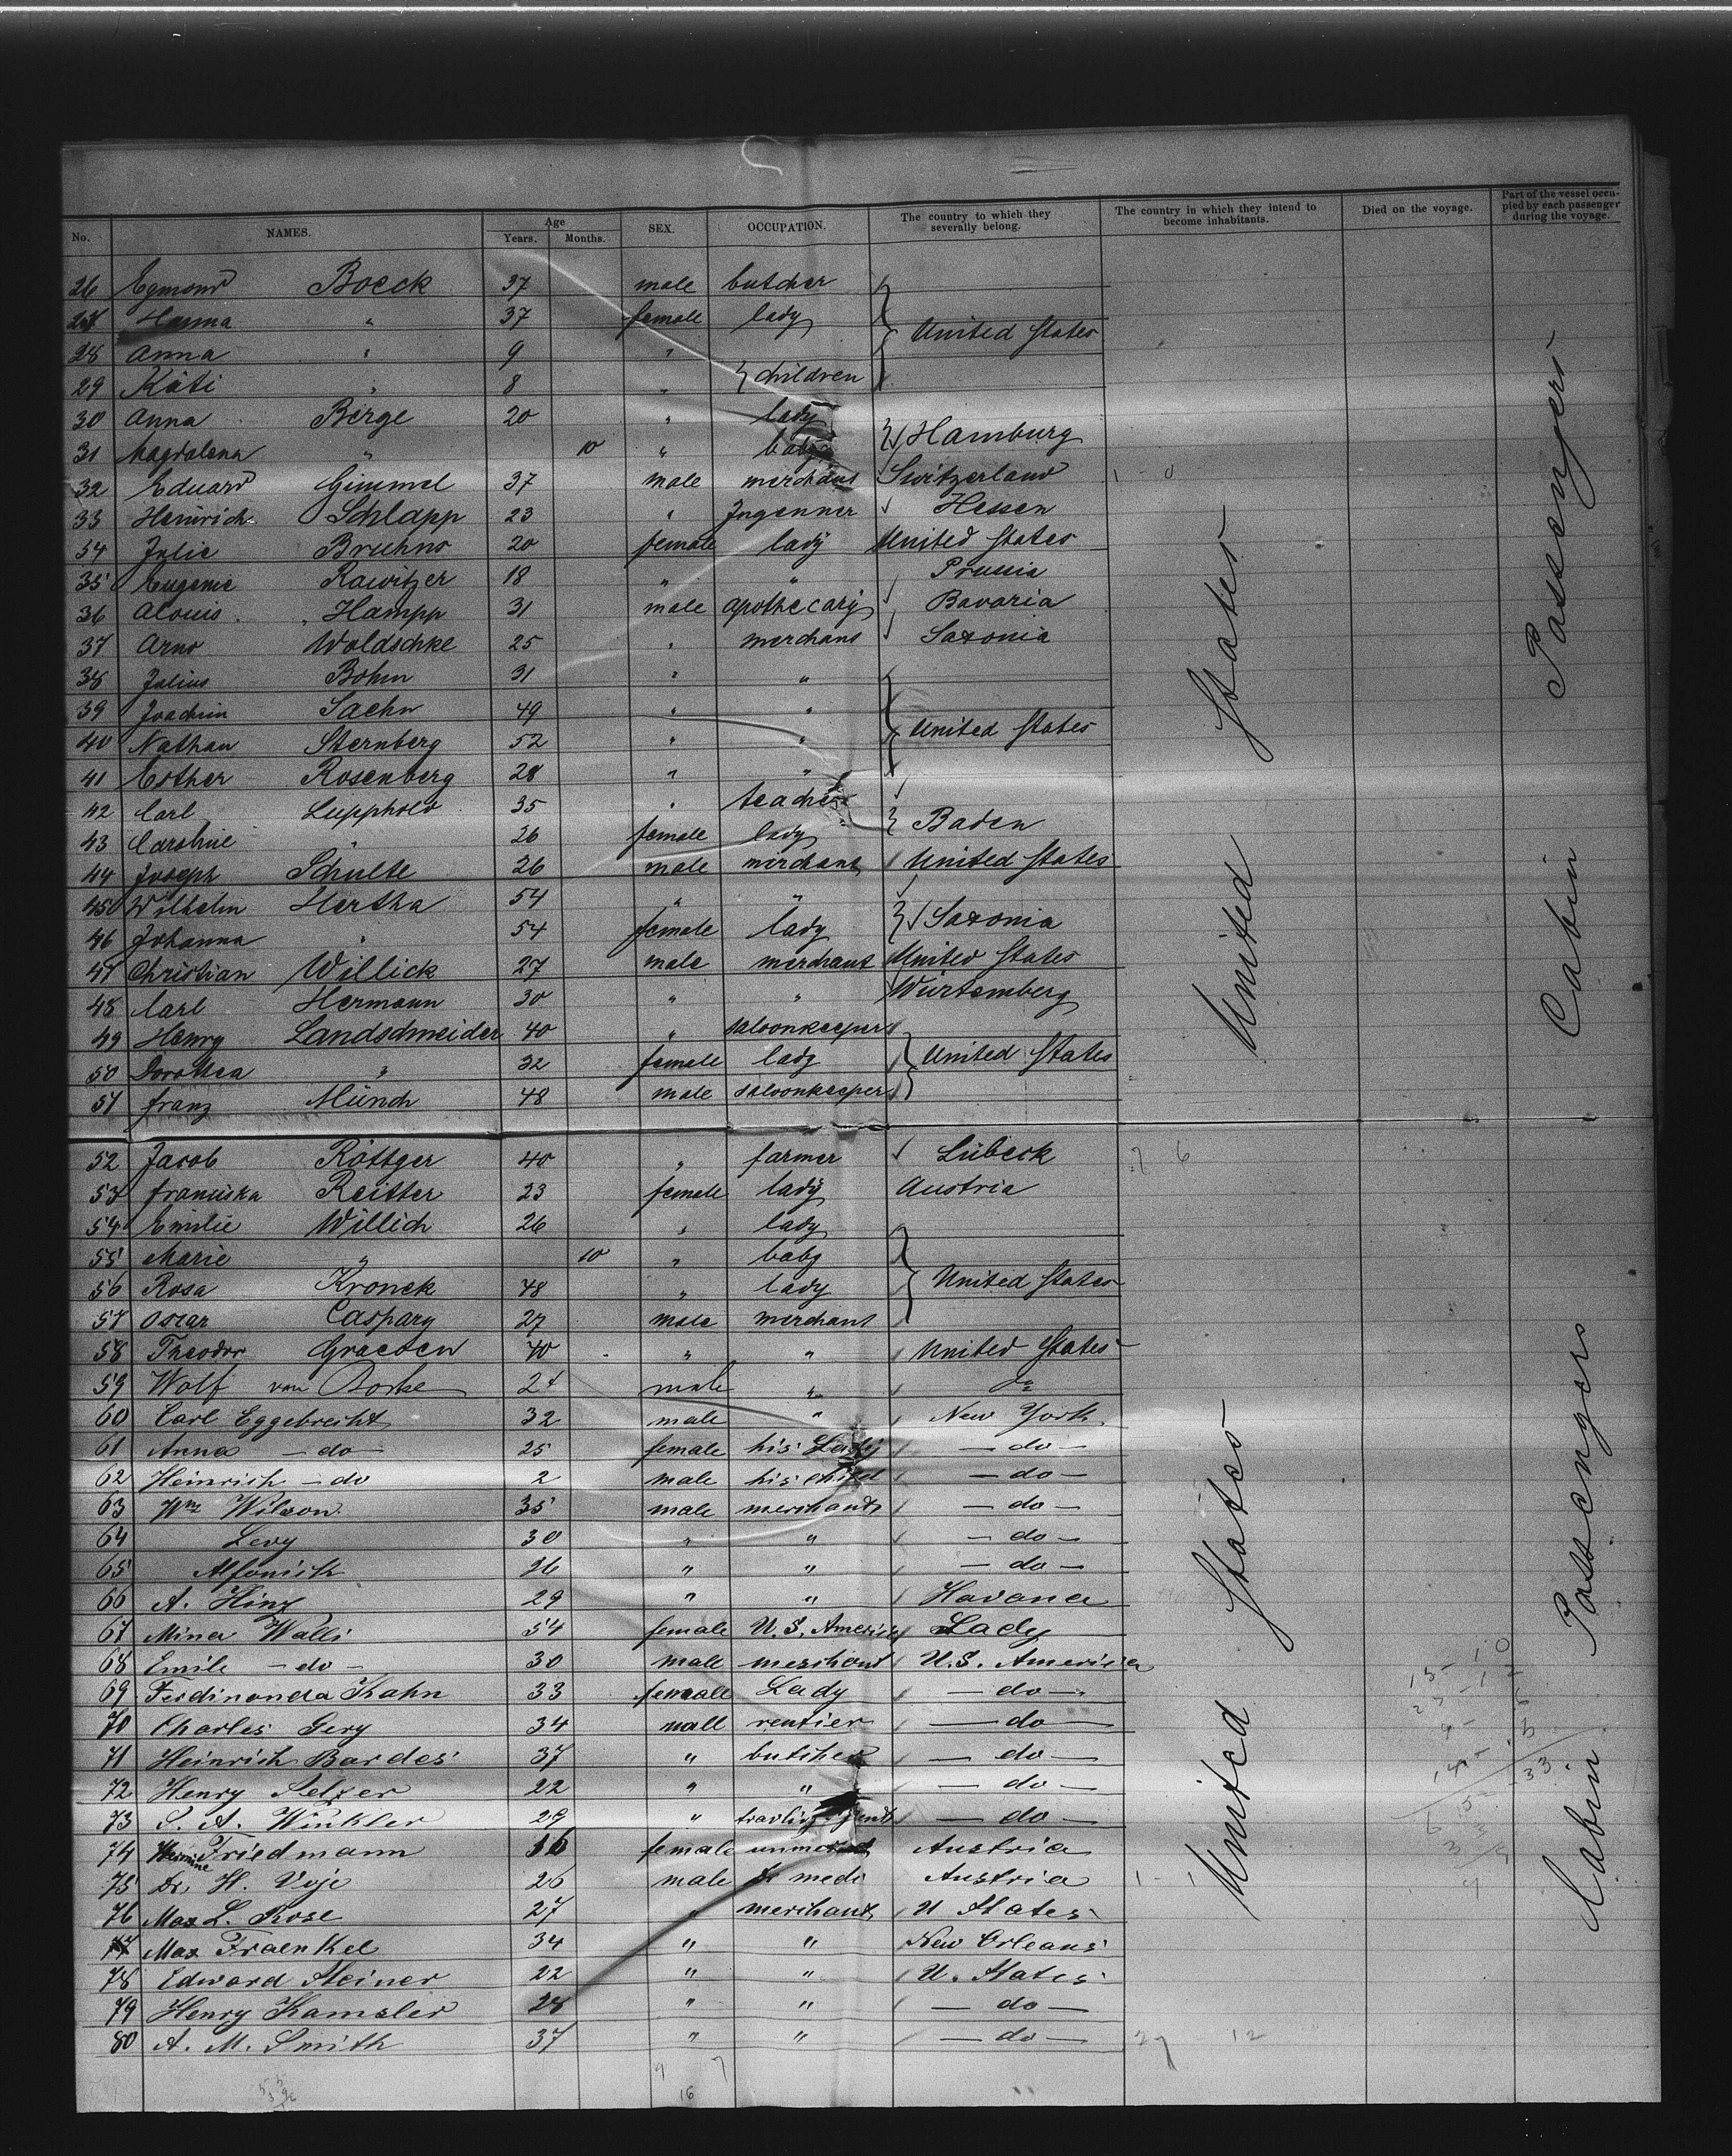 No. NAMES. Age Years. Months. SEX. OCCUPATION. The country to which they severally belong. The country in which they intend to become inhabitants. Died on the voyage. Part of the vessel occupied by each passenger during the voyage.
26 Egmond Boeck 37 male butcher
27 Hanna " 37 female lady United States
28 Anna " 9 "
29 Käti " 8 " } children
30 Anna Birge 20 " lady
31 Magdalena " 10 " baby Hamburg
32 Eduard Gimmel 37 male merchant Switzerland
33 Heinrich Schlapp 23 " Ingenner Hessen
34 Julie Bruhns 20 female lady United States
35 Eugenie Rawitzer 18 " " Prussia
36 Alouis Hampp 31 male apothecary Bavaria
37 Arno Woldschke 25 " merchant Saxonia
38 Julius Böhm 31 " "
39 Joachim Sachn 49 " "
40 Nathan Sternberg 52 " " United States
41 Esther Rosenberg 28 " "
42 Carl Lupphold 35 " teacher
43 Caroline " 26 female lady Baden
44 Joseph Schulte 26 male merchant United States
45 Wilhelm Hertha 54 " "
46 Johanna " 54 female lady Saxonia
47 Christian Willick 27 male merchant United States
48 Carl Hermann 30 " " Würtemberg
49 Henry Landschneider 40 " saloonkeeper
50 Dorothea " 32 female lady United States
51 Franz Münch 48 male saloonkeeper
52 Jacob Röttger 40 " farmer Lübeck
53 Franciska Reitter 23 female lady Austria
54 Emilie Willich 26 " lady
55 Marie " 10 " baby
56 Rosa Kronek 48 " lady United States
57 Oscar Caspary 27 male merchant
58 Theodor Graeden 40 " " United States
59 Wolf von Borke 24 male " do
60 Carl Eggebrecht 32 male " New York
61 Anna - do - 25 female his Lady - do -
62 Heinrich - do 2 male his child - do -
63 Wm Wilson 35 male merchant - do -
64 Levy 30 " " - do -
65 Alfonish 26 " " - do -
66 A. Hinz 29 " " Havana
67 Mina Walli 54 female U.S. America Lady
68 Emile - do - 30 male merchant U.S. America
69 Ferdinanda Kahn 33 female Lady - do -
70 Charles Gery 34 mall rentier - do -
71 Heinrich Bardes 37 " butcher - do -
72 Henry Selzer 22 " " - do -
73 S. A. Winkler 29 " - do -
74 Hermine Friedmann 16 female Austria
75 Dr. H. Voje 26 male medi Austria
76 Max L. Rose 27 " merchant U States
77 Max Fraenkel 34 " " New Orleans
78 Edward Steiner 22 " " U. States
79 Henry Kamsler 28 " " - do -
80 A. M. Smith 37 " " - do -
United States
United States
Cabin Passengers
Cabin Passengers
27 12
16